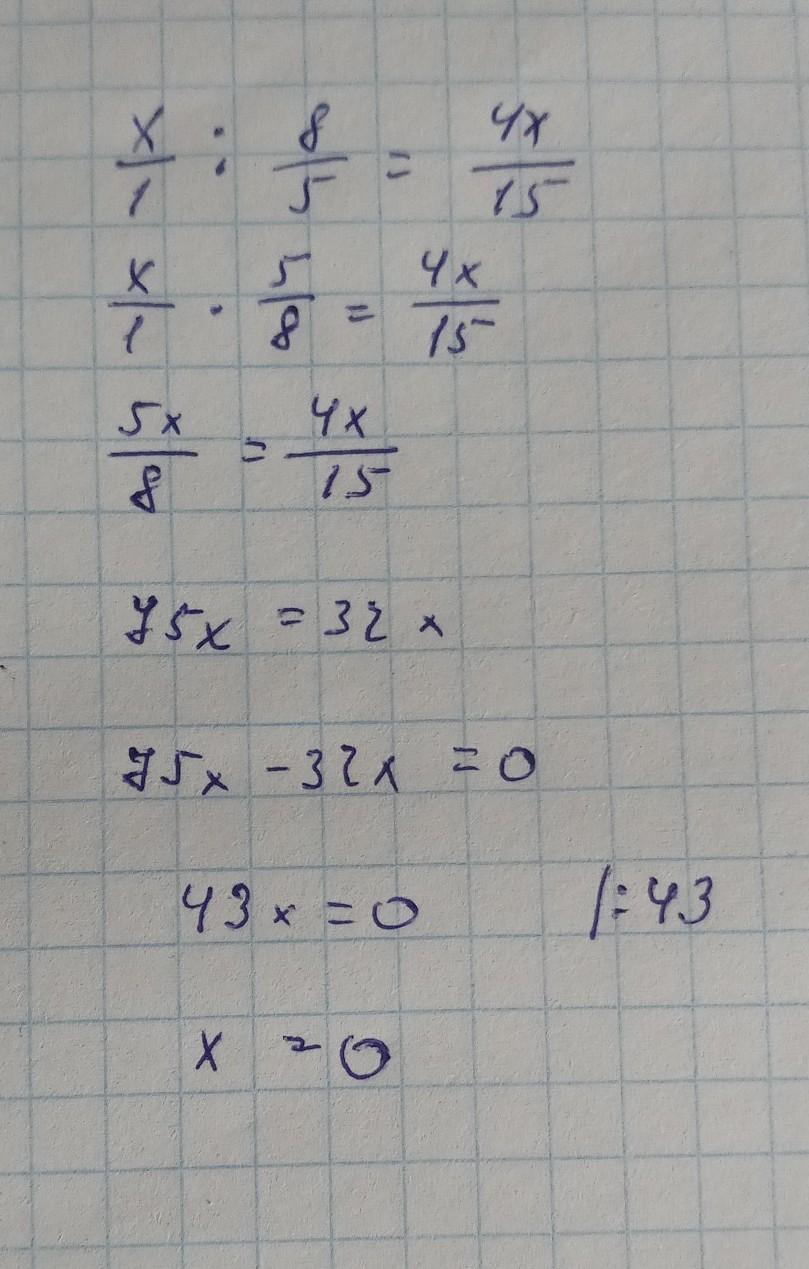 x/1 : 8/5 = 4x/15
x/1 · 5/8 = 4x/15
5x/8 = 4x/15
75x = 32x
75x - 32x = 0
43x = 0 |:43
x = 0